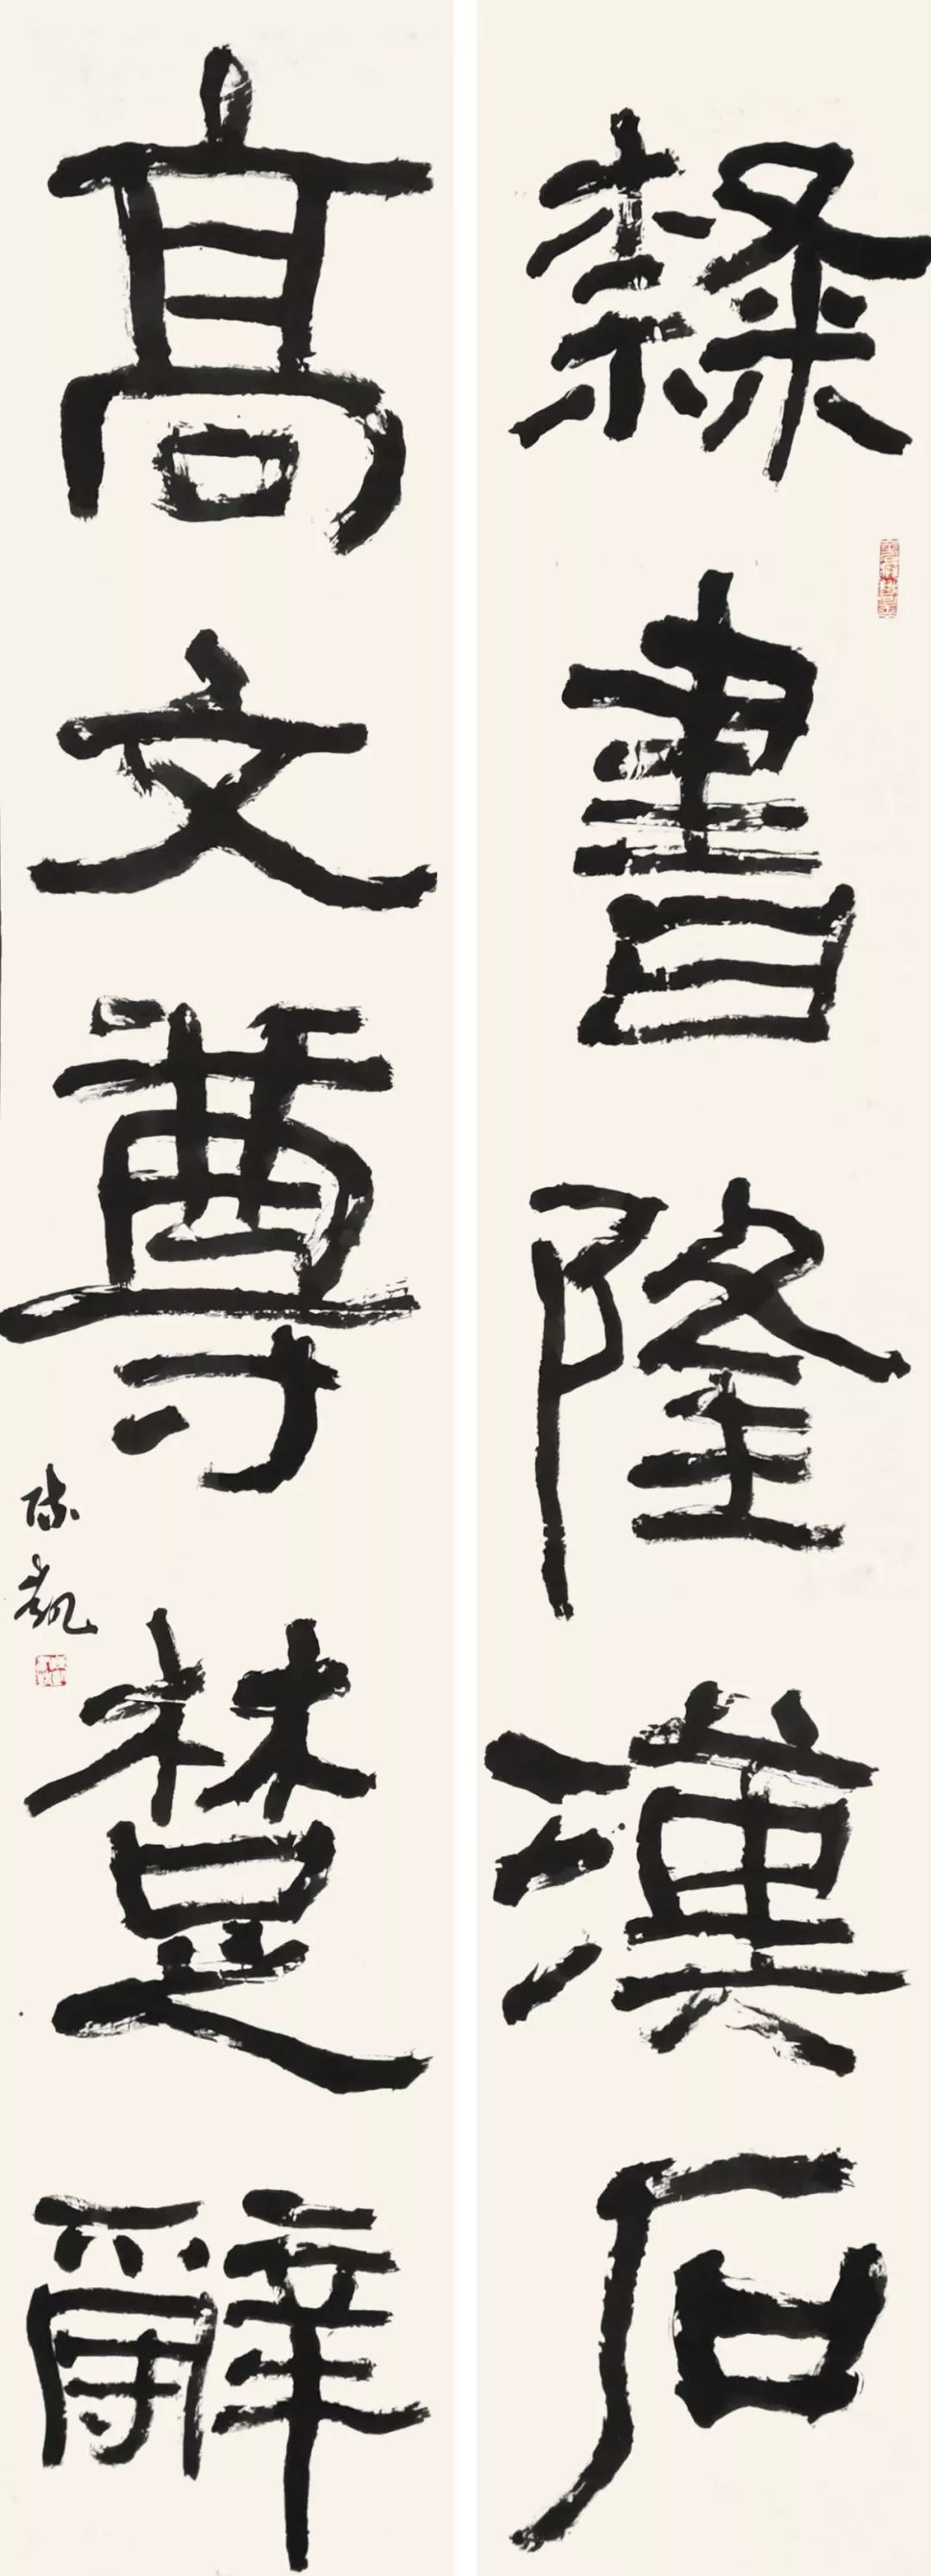 隸書隆漢石
高文尊楚辭
陈凯